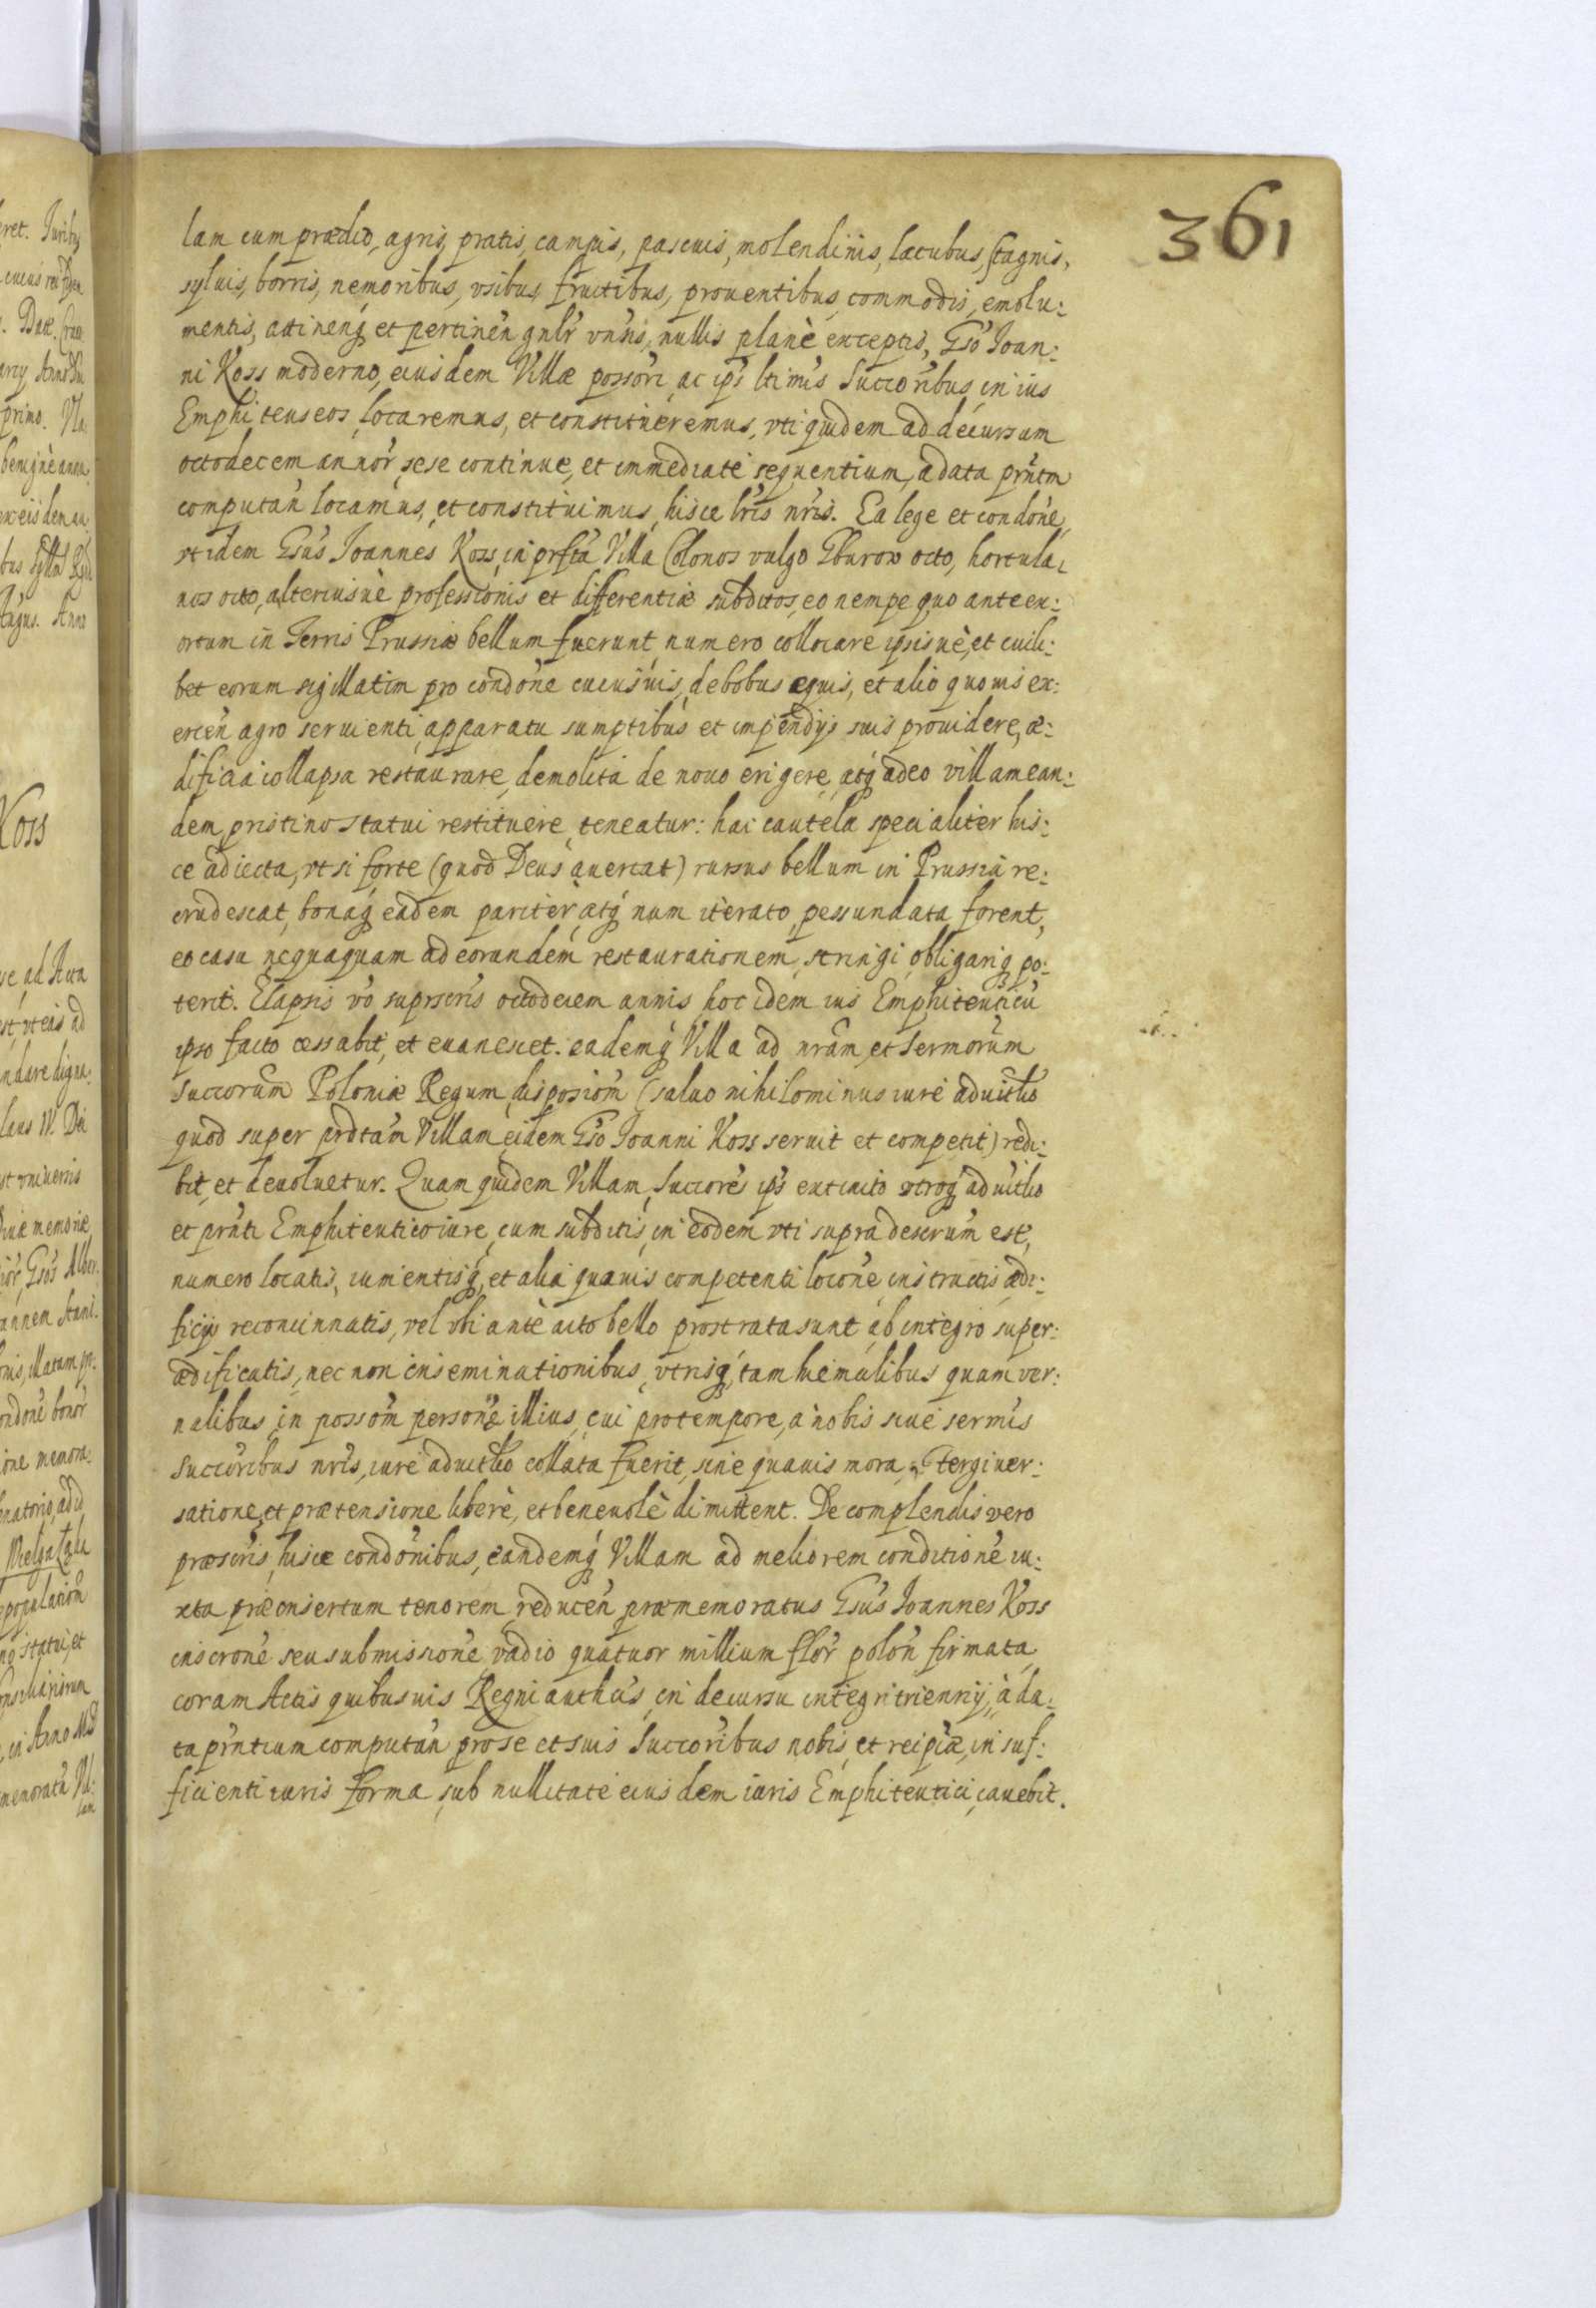 361
lam cum prædio, agris, pratis, campis, pascuis, molendinis, lacubus, stagnis,
syluis, borris, nemoribus, vsibus, fructibus, prouentibus, commodis, emolu:
mentis, attineñq́ et pertineñ gnlr̃ vnĩs, nullis planè exceptis, Gso Ioan:
ni Koss moderno, eiusdem Villæ possor̃i, ac ips̃ ltimĩs Succor̃ibus, in ius
Emphiteuseos locaremus, et constitueremus, vti quidem ad decursum
octodecem annor̃ sese continue, et immediatè sequentium, a data prñtm
computañ locamus, et constituimus, hisce lr̃is nr̃is. Ea lege et condõne,
vt idem Gsũs Ioannes Koss, in prfta Villa Colonos vulgo Gburow octo, hortula:
nos octo, alteriusuè professionis et differentiæ subditos, eo nempe quo ante ex:
ortum in Terris Prussiæ bellum fuerunt, numero collocare ipsisuè, et cuili:
bet eorum sigillatim pro condõne cuiusuis, de bobus æquis, et alio quouis ex:
erceñ agro seruienti, apparatu sumptibus et impendijs suis prouidere, æ:
dificia collapsa restaurare, demolita de nouo erigere, atq́ adeo villam ean:
dem pristino statui restituere teneatur: hac cautela specialiter his:
ce adiecta, vt si forte (quod Deus auertat) rursus bellum in Prussia re:
crudescat, bonaq́ eadem pariter atq́ num iterato, pessundata forent,
eo casu nequaquam ad eorundem restaurationem, stringi obligariq́ po:
terit. Elapsis vo suprscr̃is octodecem annis, hoc idem ius Emphiteuticũ
ipso facto cessabit, et euanescet. eademq́ Villa ad nrãm, et Sermor̃um
Succorũm Poloniæ Regum, disposiom̃ (saluo nihilominus iure aduitlĩo
quod super prdtam̃ Villam eidem Gso Ioanni Koss seruit et competit) redi:
bit, et deuoluetur. Quam quidem Villam, Succor̃es ips̃ extincto vtroq́ aduitlĩo
et prñti Emphiteutico iure, cum subditis, in eodem vti supra descrũm est,
numero locatis, iumentisq́, et alia quauis competenti locõne instructis, ædi:
ficijs reconcinnatis, vel vbi ante acto bello prostrata sunt ab integro super:
ædificatis, nec non inseminationibus, vtrisq́, tam hiemalibus quam ver:
nalibus, in possom̃ personæ illius, cui pro tempore, a nobis siue sermĩs
Succor̃ibus nr̃is, iure aduitlĩo collata fuerit, sine quauis mora, tergiuer:
satione, et prætensione liberè, et beneuolè dimittent. De complendis vero
præscr̃is, hisce condõnibus, eandemq́ Villam ad meliorem conditionẽ iu:
xta præinsertum tenorem reduceñ præmemoratus Gsũs Ioannes Koss
inscrõne seu submissione, vadio quatuor millium flor̃ poloñ firmata,
coram Actis quibusuis Regni authcĩs, in decursu integri triennij, à da:
ta prñtium computañ pro se et suis Succor̃ibus nobis, et reipĩæ, in suf:
ficienti iuris forma, sub nullitate eiusdem iuris Emphiteutici, cauebit.